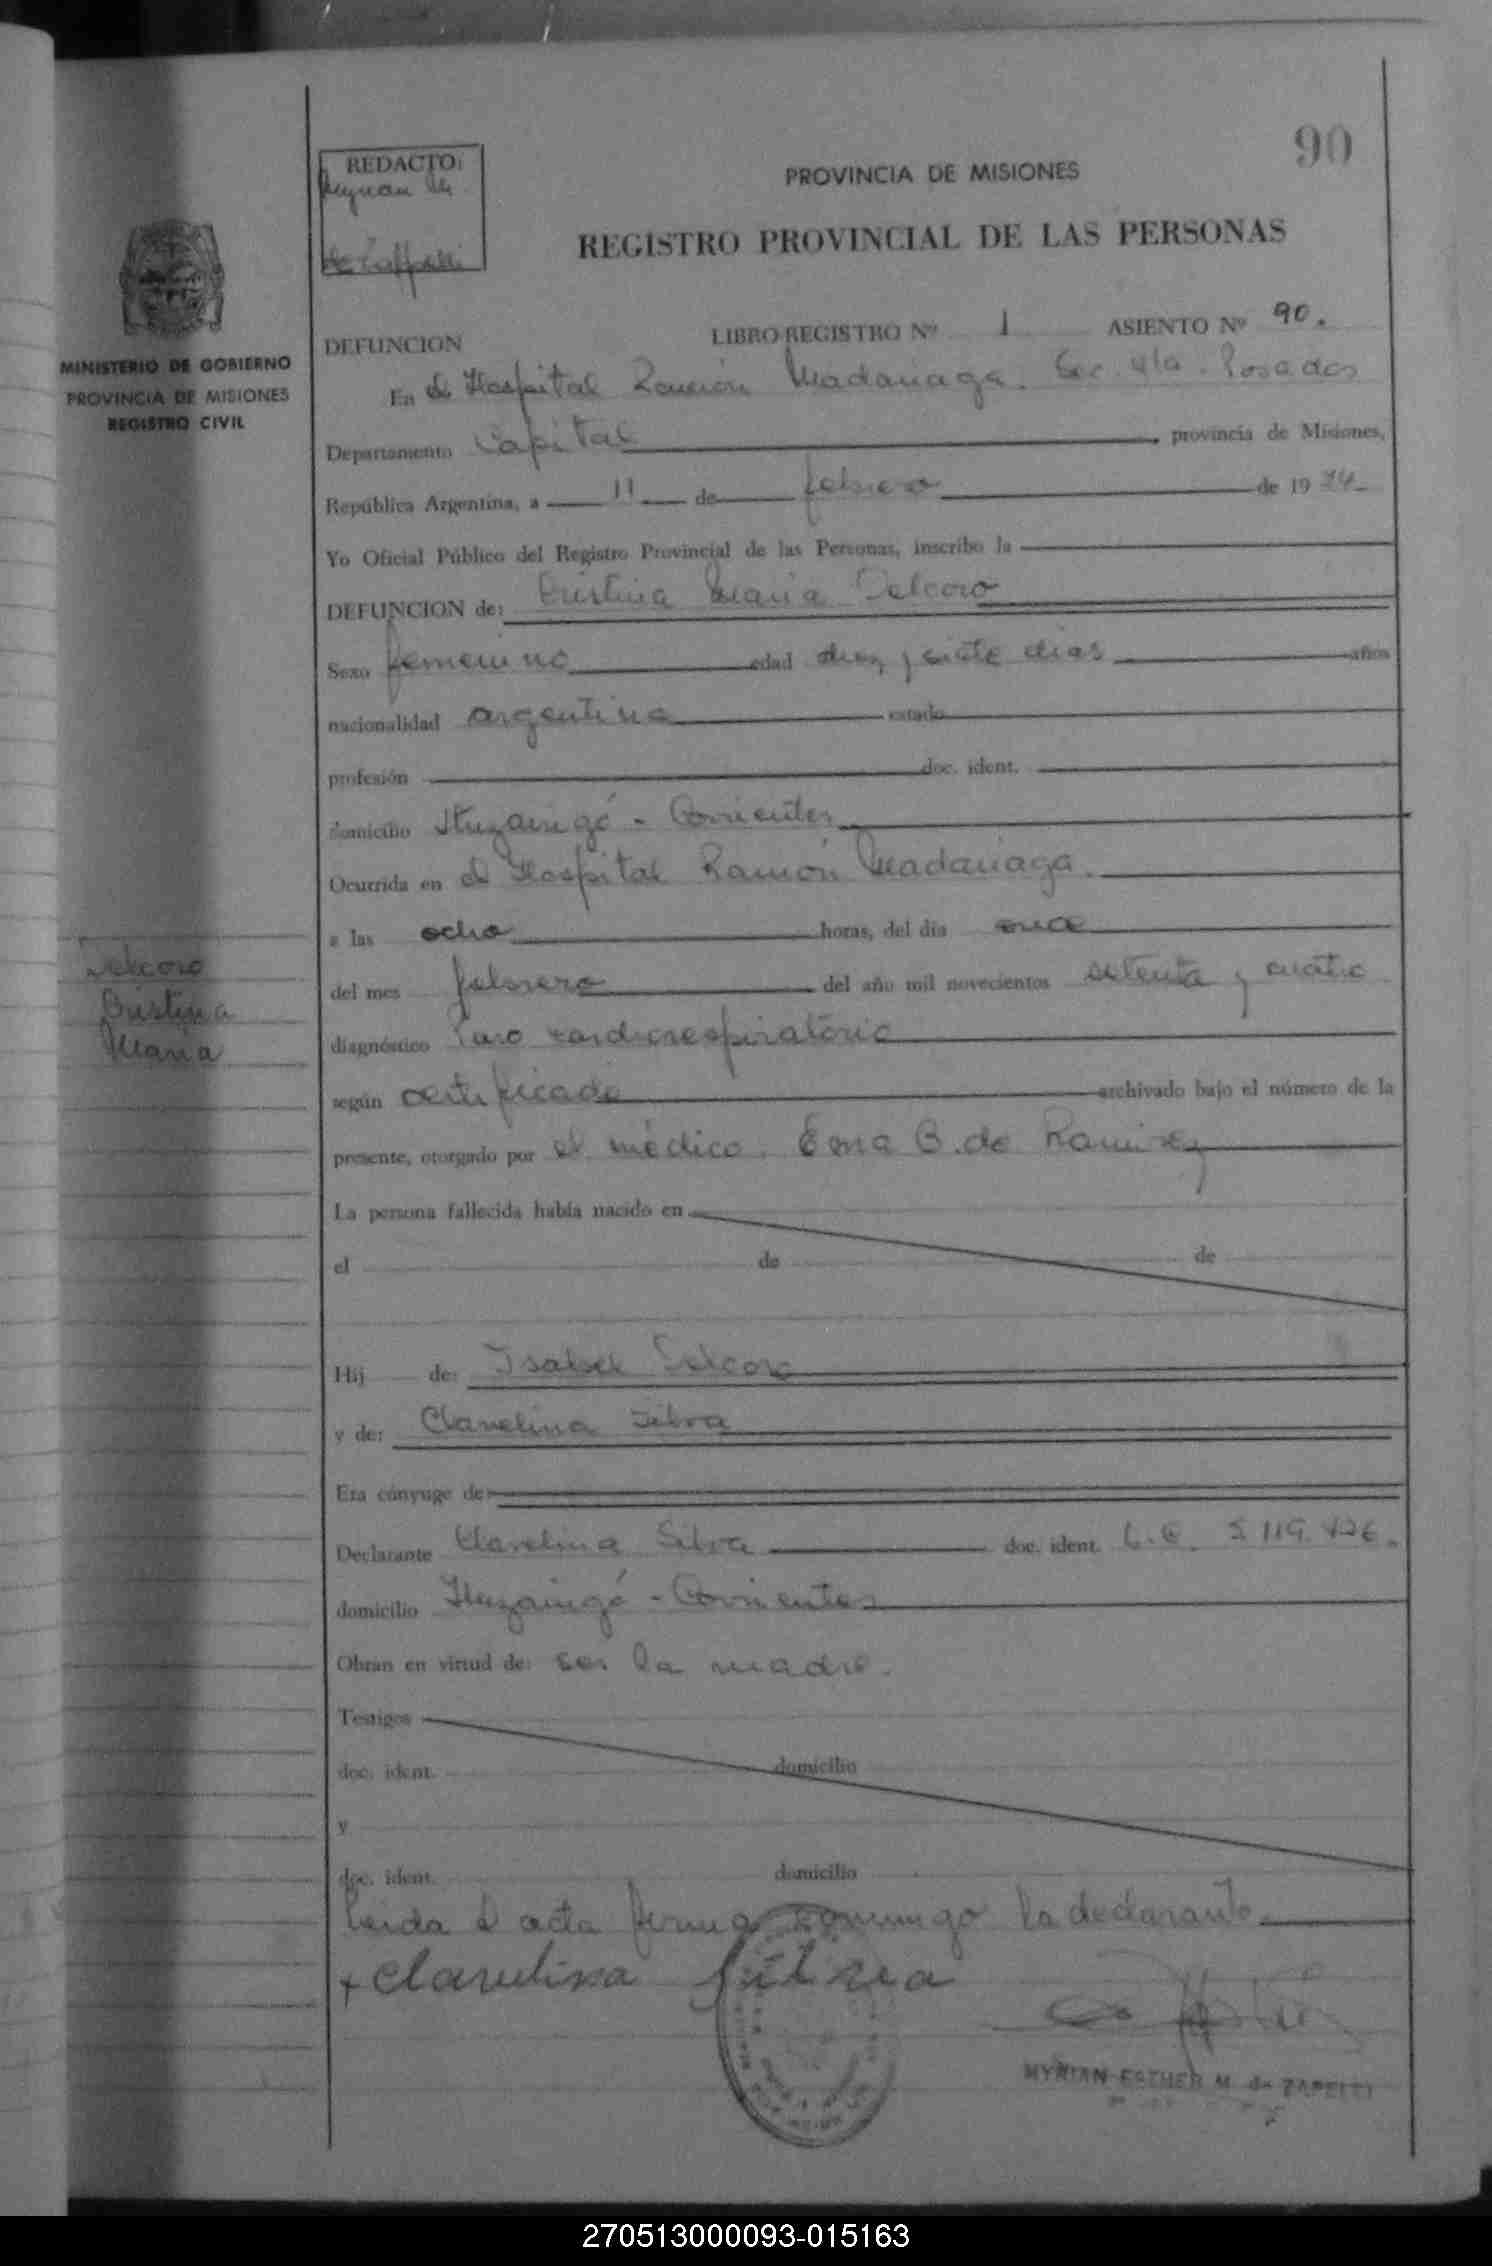 90
REDACTO:
Myrian M.
de Zappelli
PROVINCIA DE MISIONES
REGISTRO PROVINCIAL DE LAS PERSONAS
MINISTERIO DE GOBIERNO
PROVINCIA DE MISIONES
REGISTRO CIVIL
DEFUNCION LIBRO-REGISTRO Nº 1 ASIENTO Nº 90.
En el Hospital Ramón Madariaga. Sec. 4ta. Posadas
Departamento Capital provincia de Misiones,
República Argentina, a 11 de febrero de 1974
Yo Oficial Público del Registro Provincial de las Personas, inscribo la
DEFUNCION de: Cristina María Delcoro
Sexo femenino edad diez y siete dias años
nacionalidad argentina estado
profesión doc. ident.
domicilio Ituzaingó - Corrientes
Ocurrida en el Hospital Ramón Madariaga.
a las ocho horas, del día once
del mes febrero del año mil novecientos setenta y cuatro
Delcoro
Cristina
María
diagnóstico Paro cardiorespiratorio
según certificado archivado bajo el número de la
presente, otorgado por el médico. Ema B. de Ramirez
La persona fallecida había nacido en
el de de
Hij de: Isabel Delcoro
y de: Clavelina Silva
Era cónyuge de:
Declarante Clavelina Silva doc. ident. L.C. 5.119.426.
domicilio Ituzaingó - Corrientes
Obran en virtud de: ser la madre.
Testigos
doc. ident. domicilio
y
doc. ident. domicilio
Leida el acta firma conmigo la declarante.
+ Clavelina Silva
MYRIAN ESTHER M. de ZAPELLI
270513000093-015163